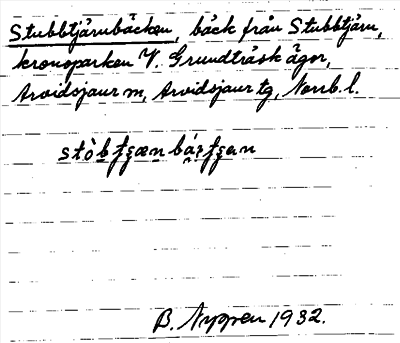 Stubbtjärnbäcken, bäck från Stubbtjärn,
kronoparken V. Grundträsk ägor,
Arvidsjaur m, Arvidsjaur tg, Norrb. l.
B. Nygren 1932.